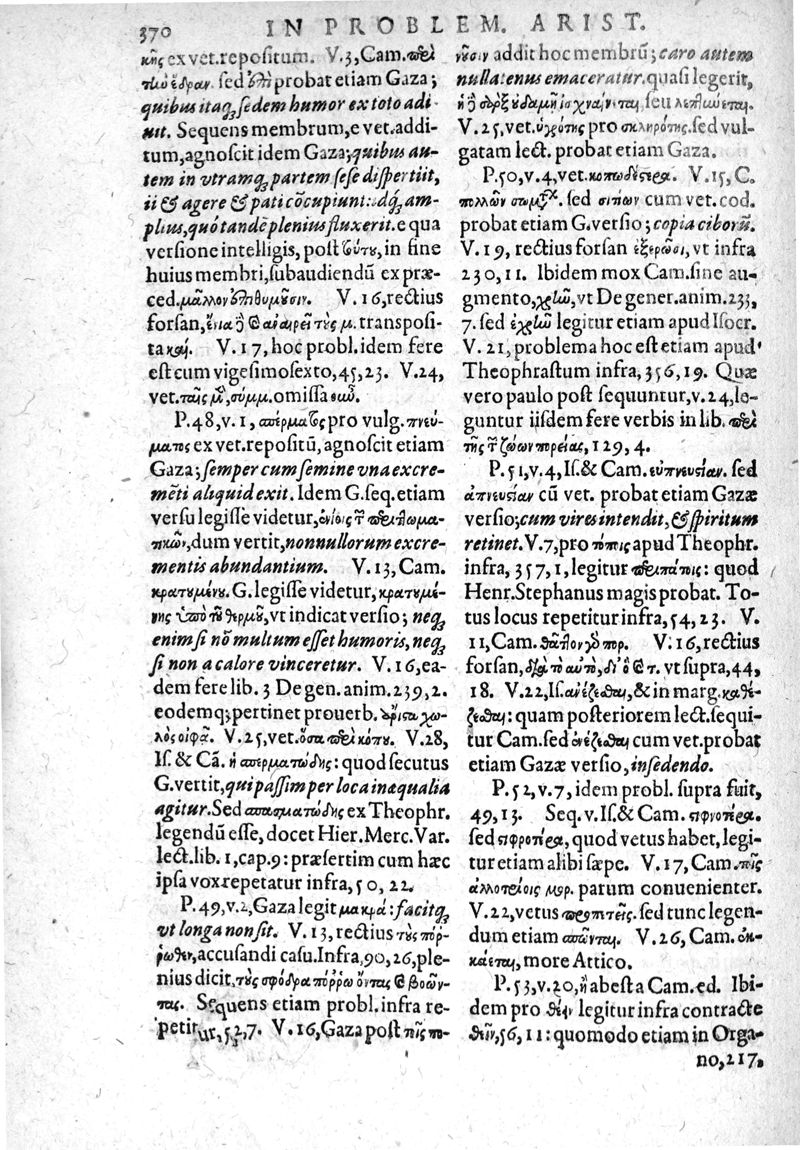 370 IN PROBLEM. ARIST.
κῆς ex vet. repositum. V. 3, Cam. περὶ
τὴν ἕδραν. sed probat etiam Gaza;
quibus itaq; sedem humor ex toto adi-
uit. Sequens membrum, e vet. addi-
tum, agnoscit idem Gaza; quibus au-
tem in vtramq; partem sese dispertiit,
ii & agere & pati cõcupiunt: dq́; am-
plius, quó tandẽ plenius fluxerit. e qua
versione intelligis, post in fine
huius membri, subaudiendũ ex præ-
ced. μᾶλλον ἐπιθυμοῦσιν. V. 16, rectius
forsan, μ. transposi-
ta καὶ. V. 17, hoc probl. idem fere
est cum vigesimosexto, 45, 23. V. 24,
vet. ταῖς σύμμ. omissa
P. 48, v. 1, σπέρματος pro vulg. πνεύ-
ματος ex vet. repositũ, agnoscit etiam
Gaza; semper cum semine vna excre-
mẽti aliquid exit. Idem G. seq. etiam
versu legisse videtur, ἐνίοις περιττωμα-
τικῶν, dum vertit, nonnullorum excre-
mentis abundantium. V. 13, Cam.
κρατουμένου. G. legisse videtur, κρατουμέ-
νης ὑπὸ τοῦ θερμοῦ, vt indicat versio; neq;
enim si nõ multum esset humoris, neq;
si non a calore vinceretur. V. 16, ea-
dem fere lib. 3 De gen. anim. 239, 2.
eodemq; pertinet prouerb. ἄριστα χω-
λὸς οἰφεῖ. V. 25, vet. ὅσα περὶ κόπου. V. 28,
Is. & Cã. ἡ σπερματώδης: quod secutus
G. vertit, qui passim per loca inæqualia
agitur. Sed σπασματώδης ex Theophr.
legendũ esse, docet Hier. Merc. Var.
lect. lib. 1, cap. 9: præsertim cum hæc
ipsa vox repetatur infra, 50, 22.
P. 49, v. 2, Gaza legit μακρά: facitq;
vt longa non sit. V. 13, rectius τοὺς πόρ-
ρωθεν, accusandi casu. Infra, 90, 26, ple-
nius dicit, τοὺς σφόδρα πόρρω ὄντας καὶ βοῶν-
τας. Sequens etiam probl. infra re-
petitur, 52, 7. V. 16, Gaza post
addit hoc membrũ; caro autem
nullatenus emaceratur. quasi legerit,
ἡ δὲ σὰρξ οὐδαμῆ ἰσχναίνεται, seu λεπτύνεται.
V. 25, vet. ὑγρότης pro σκληρότης. sed vul-
gatam lect. probat etiam Gaza.
P. 50, v. 4, vet. κοπωδέστερα. V. 15, C.
πολλῶν sed σιτίων cum vet. cod.
probat etiam G. versio; copia ciborũ.
V. 19, rectius forsan ἐξερῶσι, vt infra
230, 11. Ibidem mox Cam. sine au-
gmento, vt De gener. anim. 233,
7. sed legitur etiam apud Isocr.
V. 21, problema hoc est etiam apud
Theophrastum infra, 356, 19. Quæ
vero paulo post sequuntur, v. 24, le-
guntur iisdem fere verbis in lib. περὶ
τῆς τῶν ζώων πορείας, 129, 4.
P. 51, v. 4, Is. & Cam. εὐπνευσίαν. sed
ἀπνευσίαν cũ vet. probat etiam Gazæ
versio; cum vires intendit, & spiritum
retinet. V. 7, pro τόποις apud Theophr.
infra, 357, 1, legitur quod
Henr. Stephanus magis probat. To-
tus locus repetitur infra, 54, 23. V.
11, Cam. θᾶττον γὰρ πορ. V. 16, rectius
forsan, διὰ τὸ αὐτὸ, δι' ὃ καὶ τ. vt supra, 44,
18. V. 22, Is. ἀνέζεσθαι, & in marg. καθέ-
ζεσθαι: quam posteriorem lect. sequi-
tur Cam. sed ἐνέζεσθαι cum vet. probat
etiam Gazæ versio, insedendo.
P. 52, v. 7, idem probl. supra fuit,
49, 13. Seq. v. Is. & Cam.
sed quod vetus habet, legi-
tur etiam alibi sæpe. V. 17, Cam. τοῖς
ἀλλοτρίοις μορ. parum conuenienter.
V. 22, vetus sed tunc legen-
dum etiam V. 26, Cam. ἐκ-
κάεται, more Attico.
P. 53, v. 20, ἢ abest a Cam. ed. Ibi-
dem pro legitur infra contracte
θεῖν, 56, 11: quomodo etiam in Orga-
no, 217,